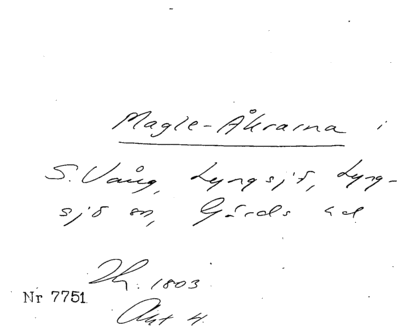 Magle-Åkrarna i
S. Vång, Lyngsjö, Lyng-
sjö sn, Gärds hd
1803
Nr 7751
Akt 4